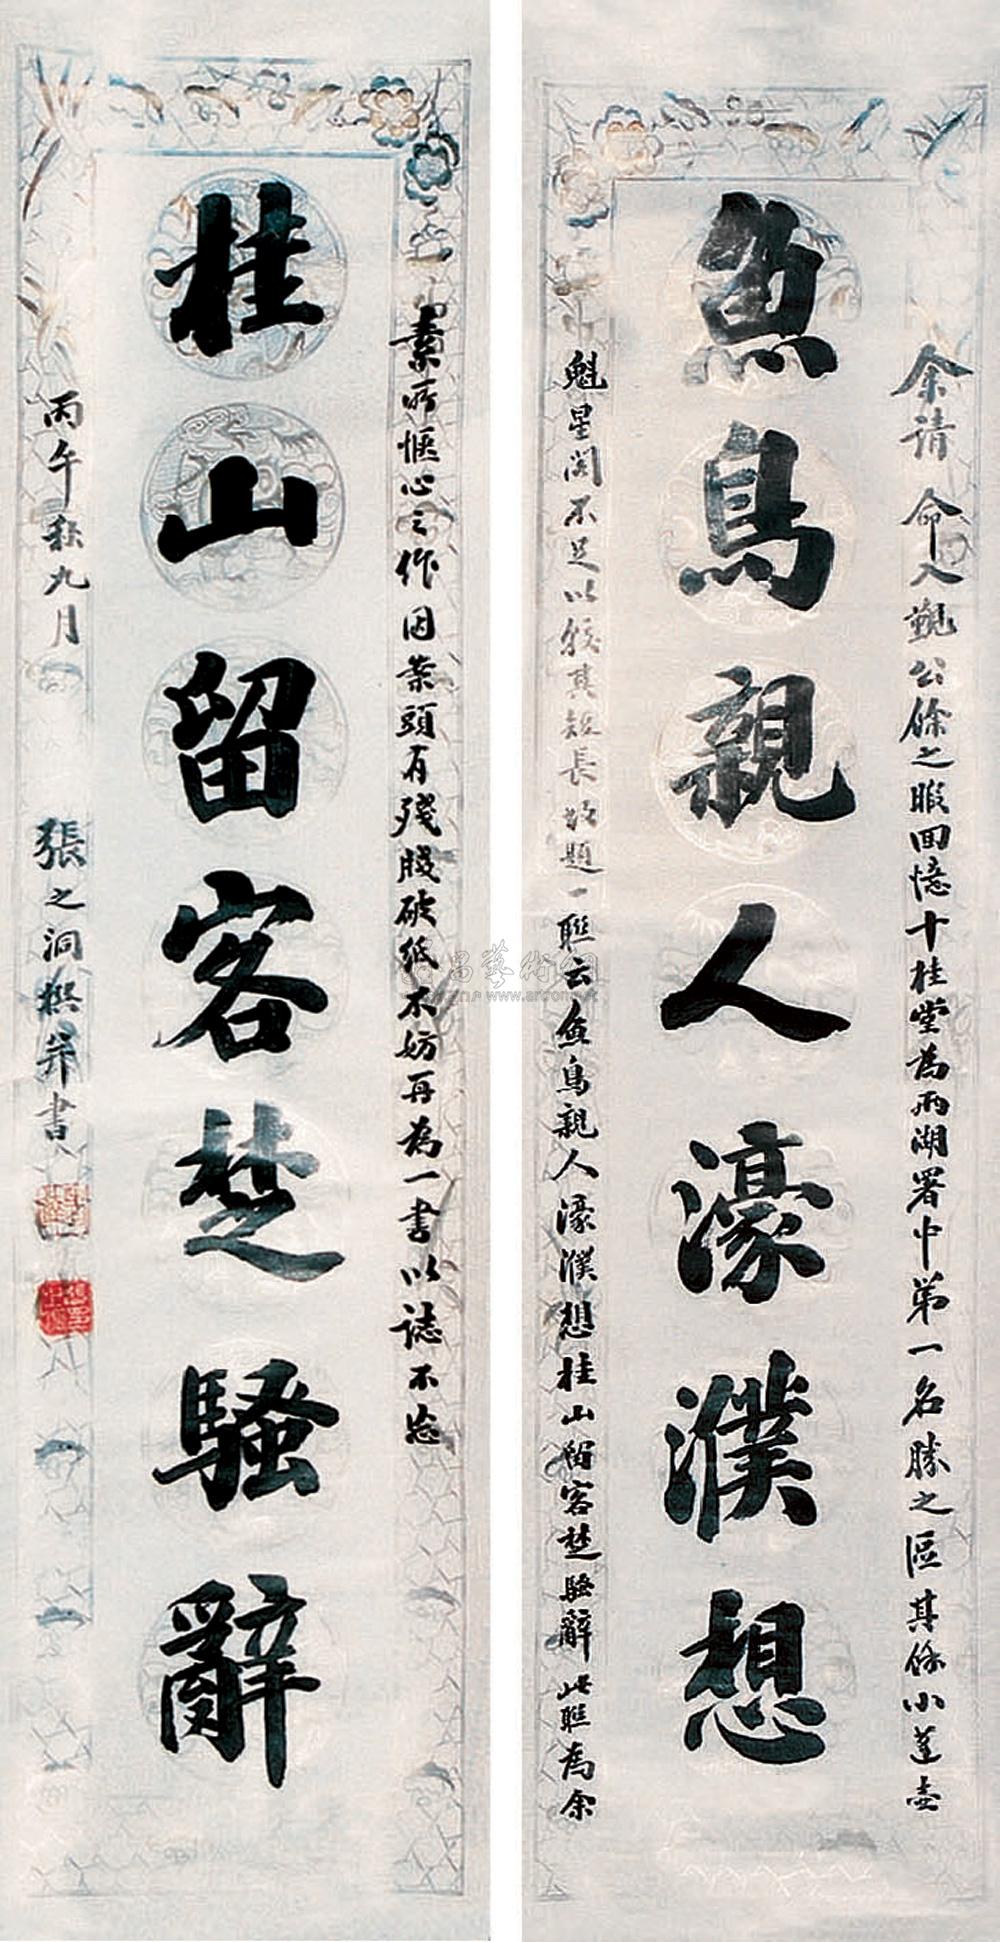 余請命入覲公餘之暇回憶十桂堂為兩湖署中第一名勝之區其餘小蓬壺
魚鳥親人濠濮想
魁星閣不足以較其短長故題一聯云魚鳥親人濠濮想桂山留客楚騷辭此聯為余
素所愜心之作因案頭有殘牋破紙不妨再為一書以誌不忘
桂山留客楚騷辭
丙午秋九月
張之洞撰并書
www.artron.net